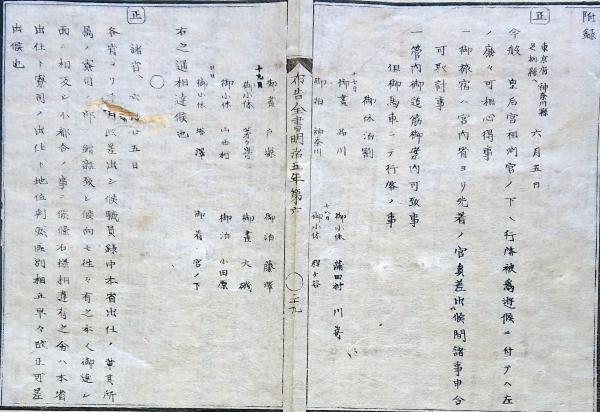 附録
正
東京府 神奈川縣
足柄縣 六月五日
今般 皇后宮相州宮ノ下ヘ行啓被為遊候ニ付テハ左
ノ廉々可相心得事
一御旅宿ハ宮内省ヨリ先着ノ官員差出候間諸事申合
可取計事
一管内御道筋御案内可致事
但御馬車ニテ行啓ノ事
御休泊割
十七日
御晝 品川 御小休 蒲田村 川崎
御泊 神奈川
十八日
御小休 程ヶ谷
布告全書明治五年第六 十九
御晝 戸塚 御泊 藤澤
十九日
御小休 茅ヶ崎 御晝 大磯
御小休 山西村 御泊 小田原
廿日
御小休 塔澤 御着 宮ノ下
右之通相達候也
正
諸省 六 五日
各省ヨリ 差出シ候職員録中本省出仕ノ輩其所
属ノ寮司 致シ候向モ往々有之 御達シ
面ニ相反シ不都合ノ事ニ候條右様相違有之分ハ本省
出仕ト寮司ノ出仕ト地位判然區別相立早々改正可差
出候也